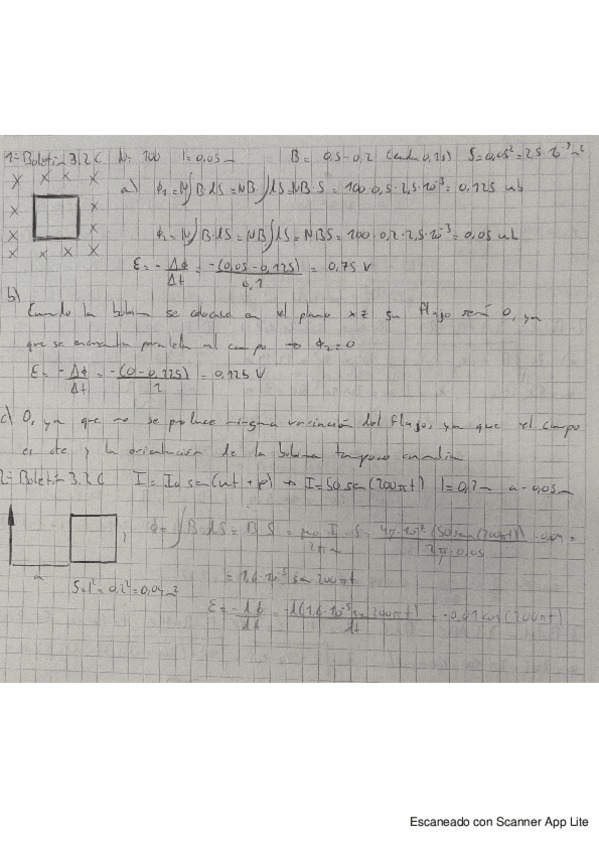 1= Boletín 3.2 C N: 100 l=0,05m B= 0,5-0,2 (en 0,1s) S=0,05²=2,5·10⁻³ m²
X X X X
a) ϕ₁=N∫B·dS=NB∫dS=NB·S=100·0,5·2,5·10⁻³=0,125 wb
ϕ₂=N∫B·dS=NB∫dS=NBS=100·0,2·2,5·10⁻³=0,05 wb
X X
X X
X X X X
ε=-Δϕ/Δt=-(0,05-0,125)/0,1=0,75 V
b)
Cuando la bobina se coloca en el plano xz su flujo será 0, ya
que se encuentra paralela al campo → ϕ₂=0
ε=-Δϕ/Δt=-(0-0,125)/1=0,125 V
c) 0, ya que no se produce ninguna variación del flujo, ya que el campo
es cte y la orientación de la bobina tampoco cambia
2= Boletín 3.2 C I=I₀ sen(ωt+φ) → I=50 sen(200πt) l=0,2m a=0,05m
ϕ=∫B·dS=B·S=μ₀ I/2πa·S=4π·10⁻⁷(50 sen(200πt))/2π·0,05·0,04=
a
S=l²=0,2²=0,04m²
=1,6·10⁻⁵ sen 200πt
ε=-dϕ/dt=-d(1,6·10⁻⁵ sen 200πt)/dt=-0,01 cos(200πt)
Escaneado con Scanner App Lite